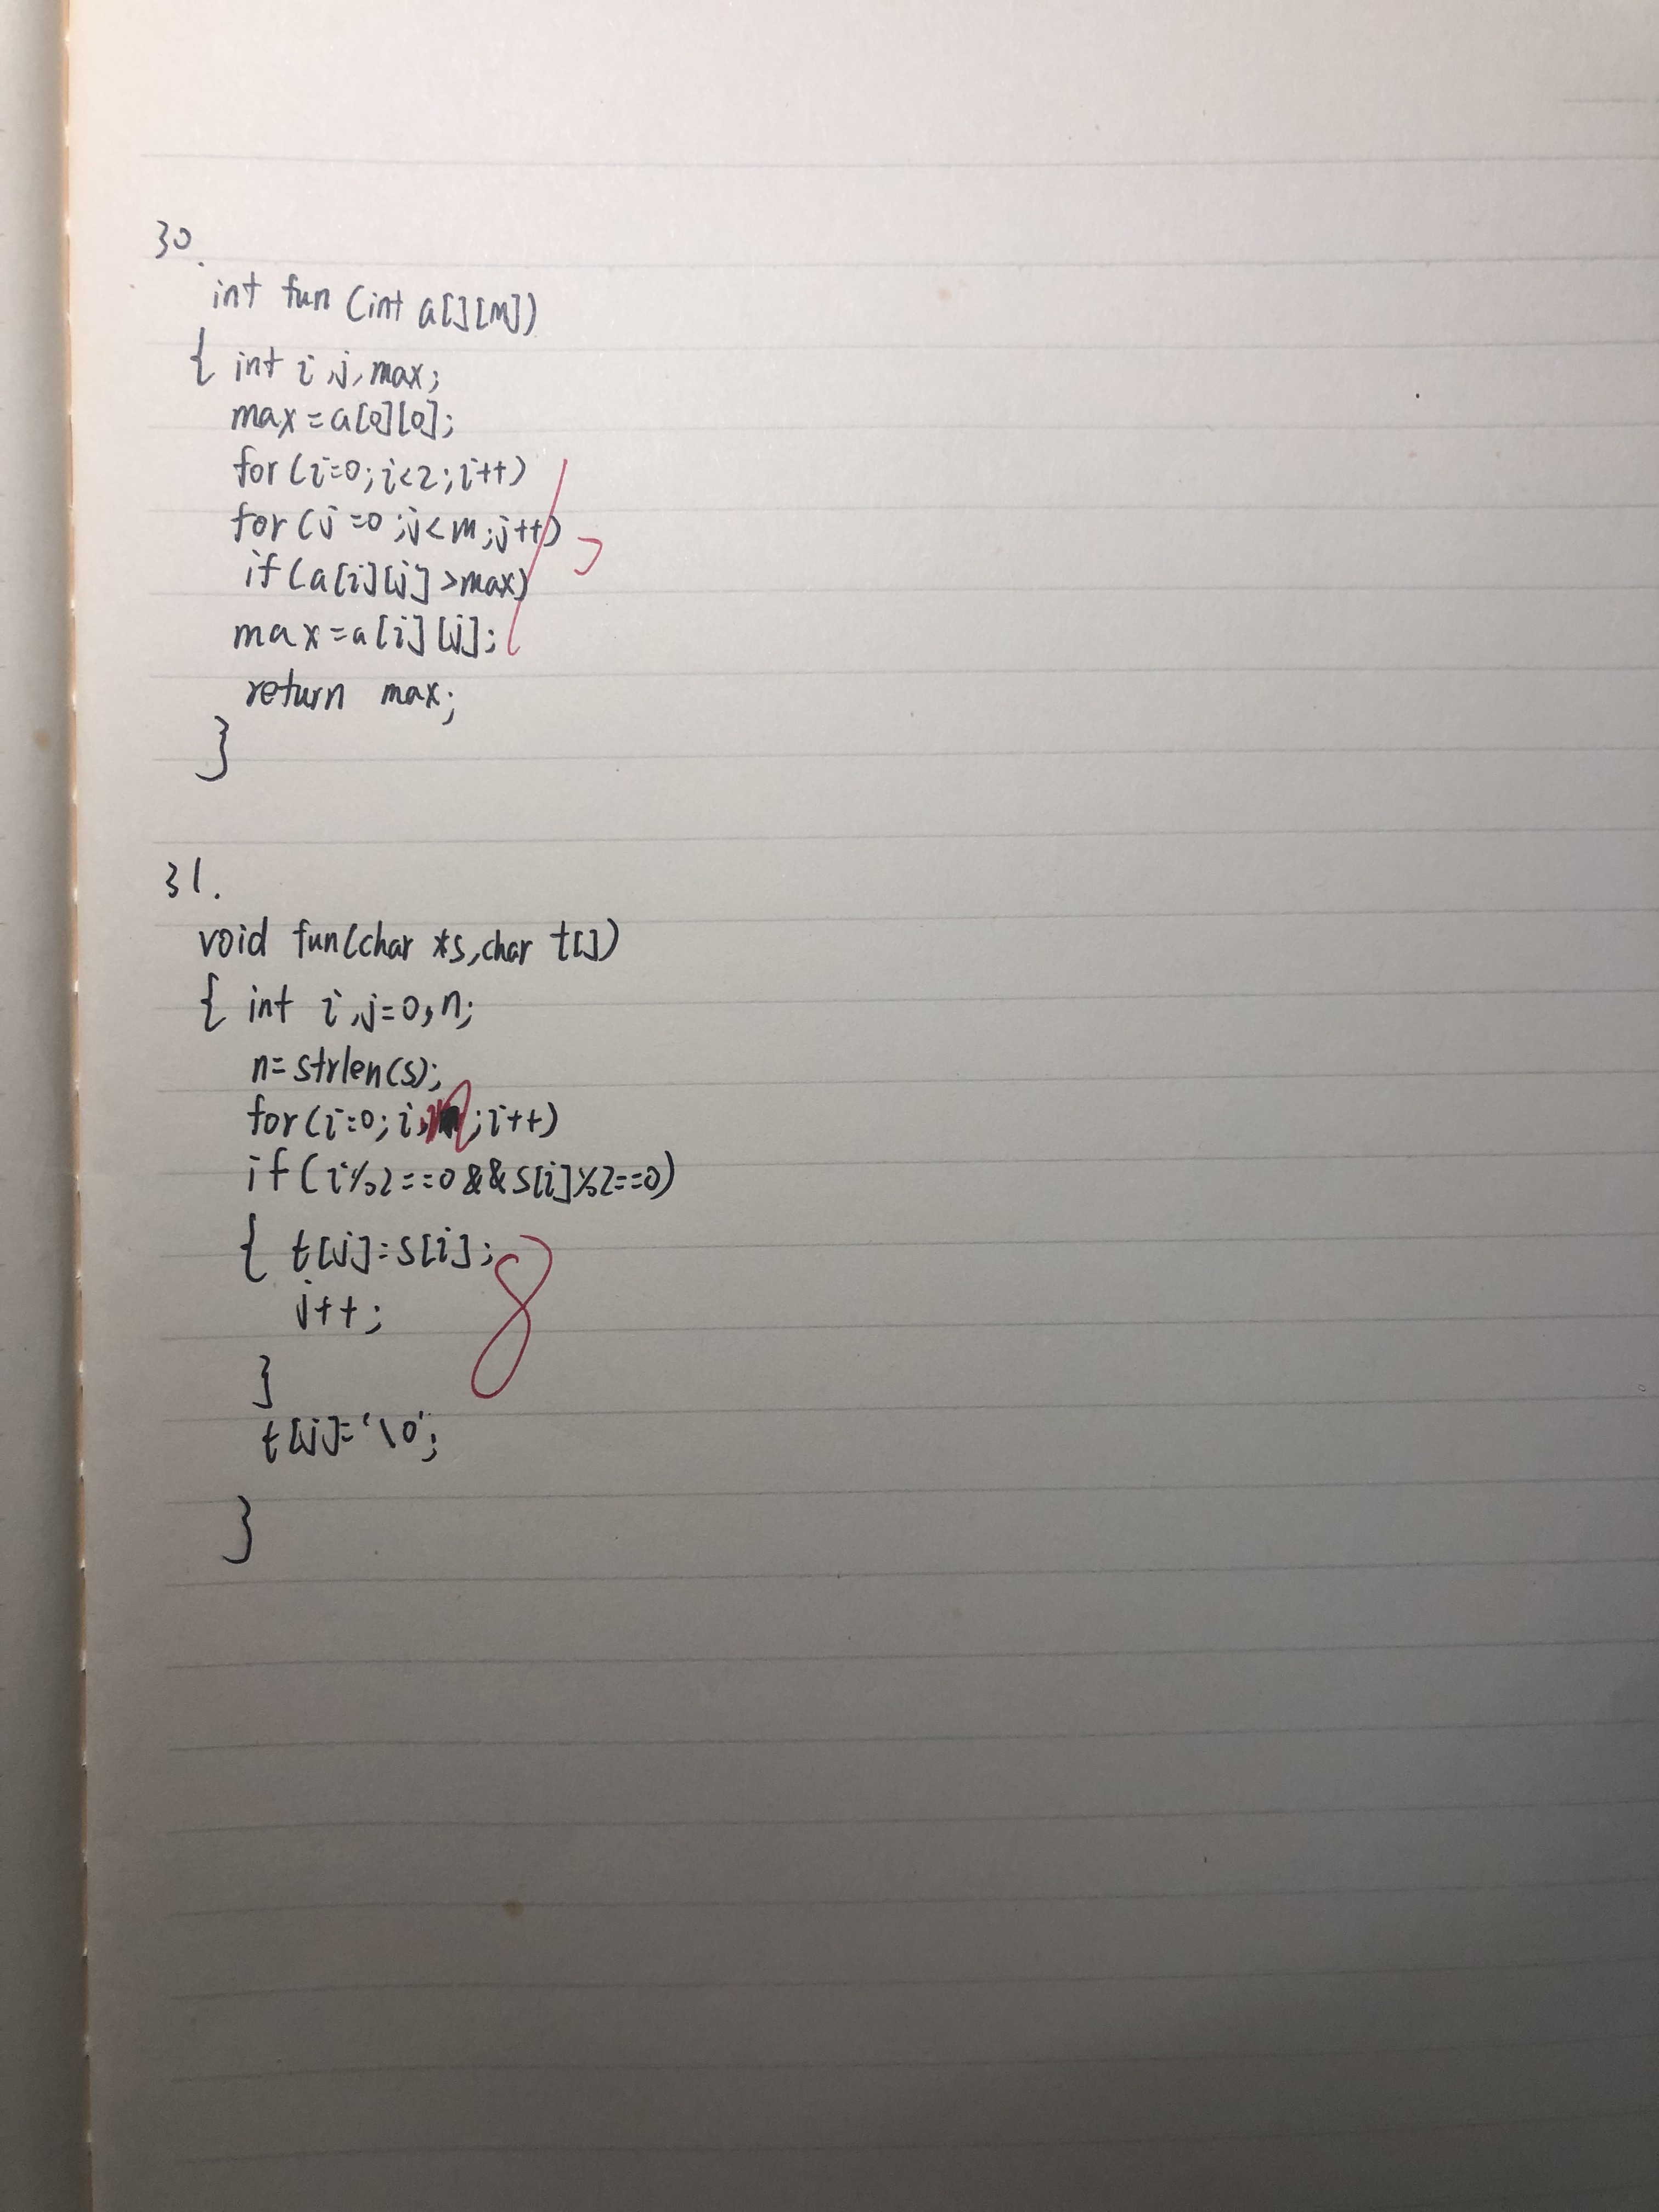 30.
int fun (int a[][M])
{ int i,j,max;
max=a[0][0];
for(i=0;i<2;i++)
for(j=0;j<m;j++)
if(a[i][j]>max)
max=a[i][j];
return max;
}
31.
void fun(char *s,char t[])
{ int i,j=0,n;
n=strlen(s);
for(i=0;i ;i++)
if(i%2==0&&s[i]%2==0)
{ t[j]=s[i];
j++;
}
t[j]='\0';
}